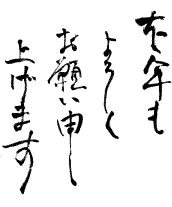 本年も
よろしく
お願い申し
上げます